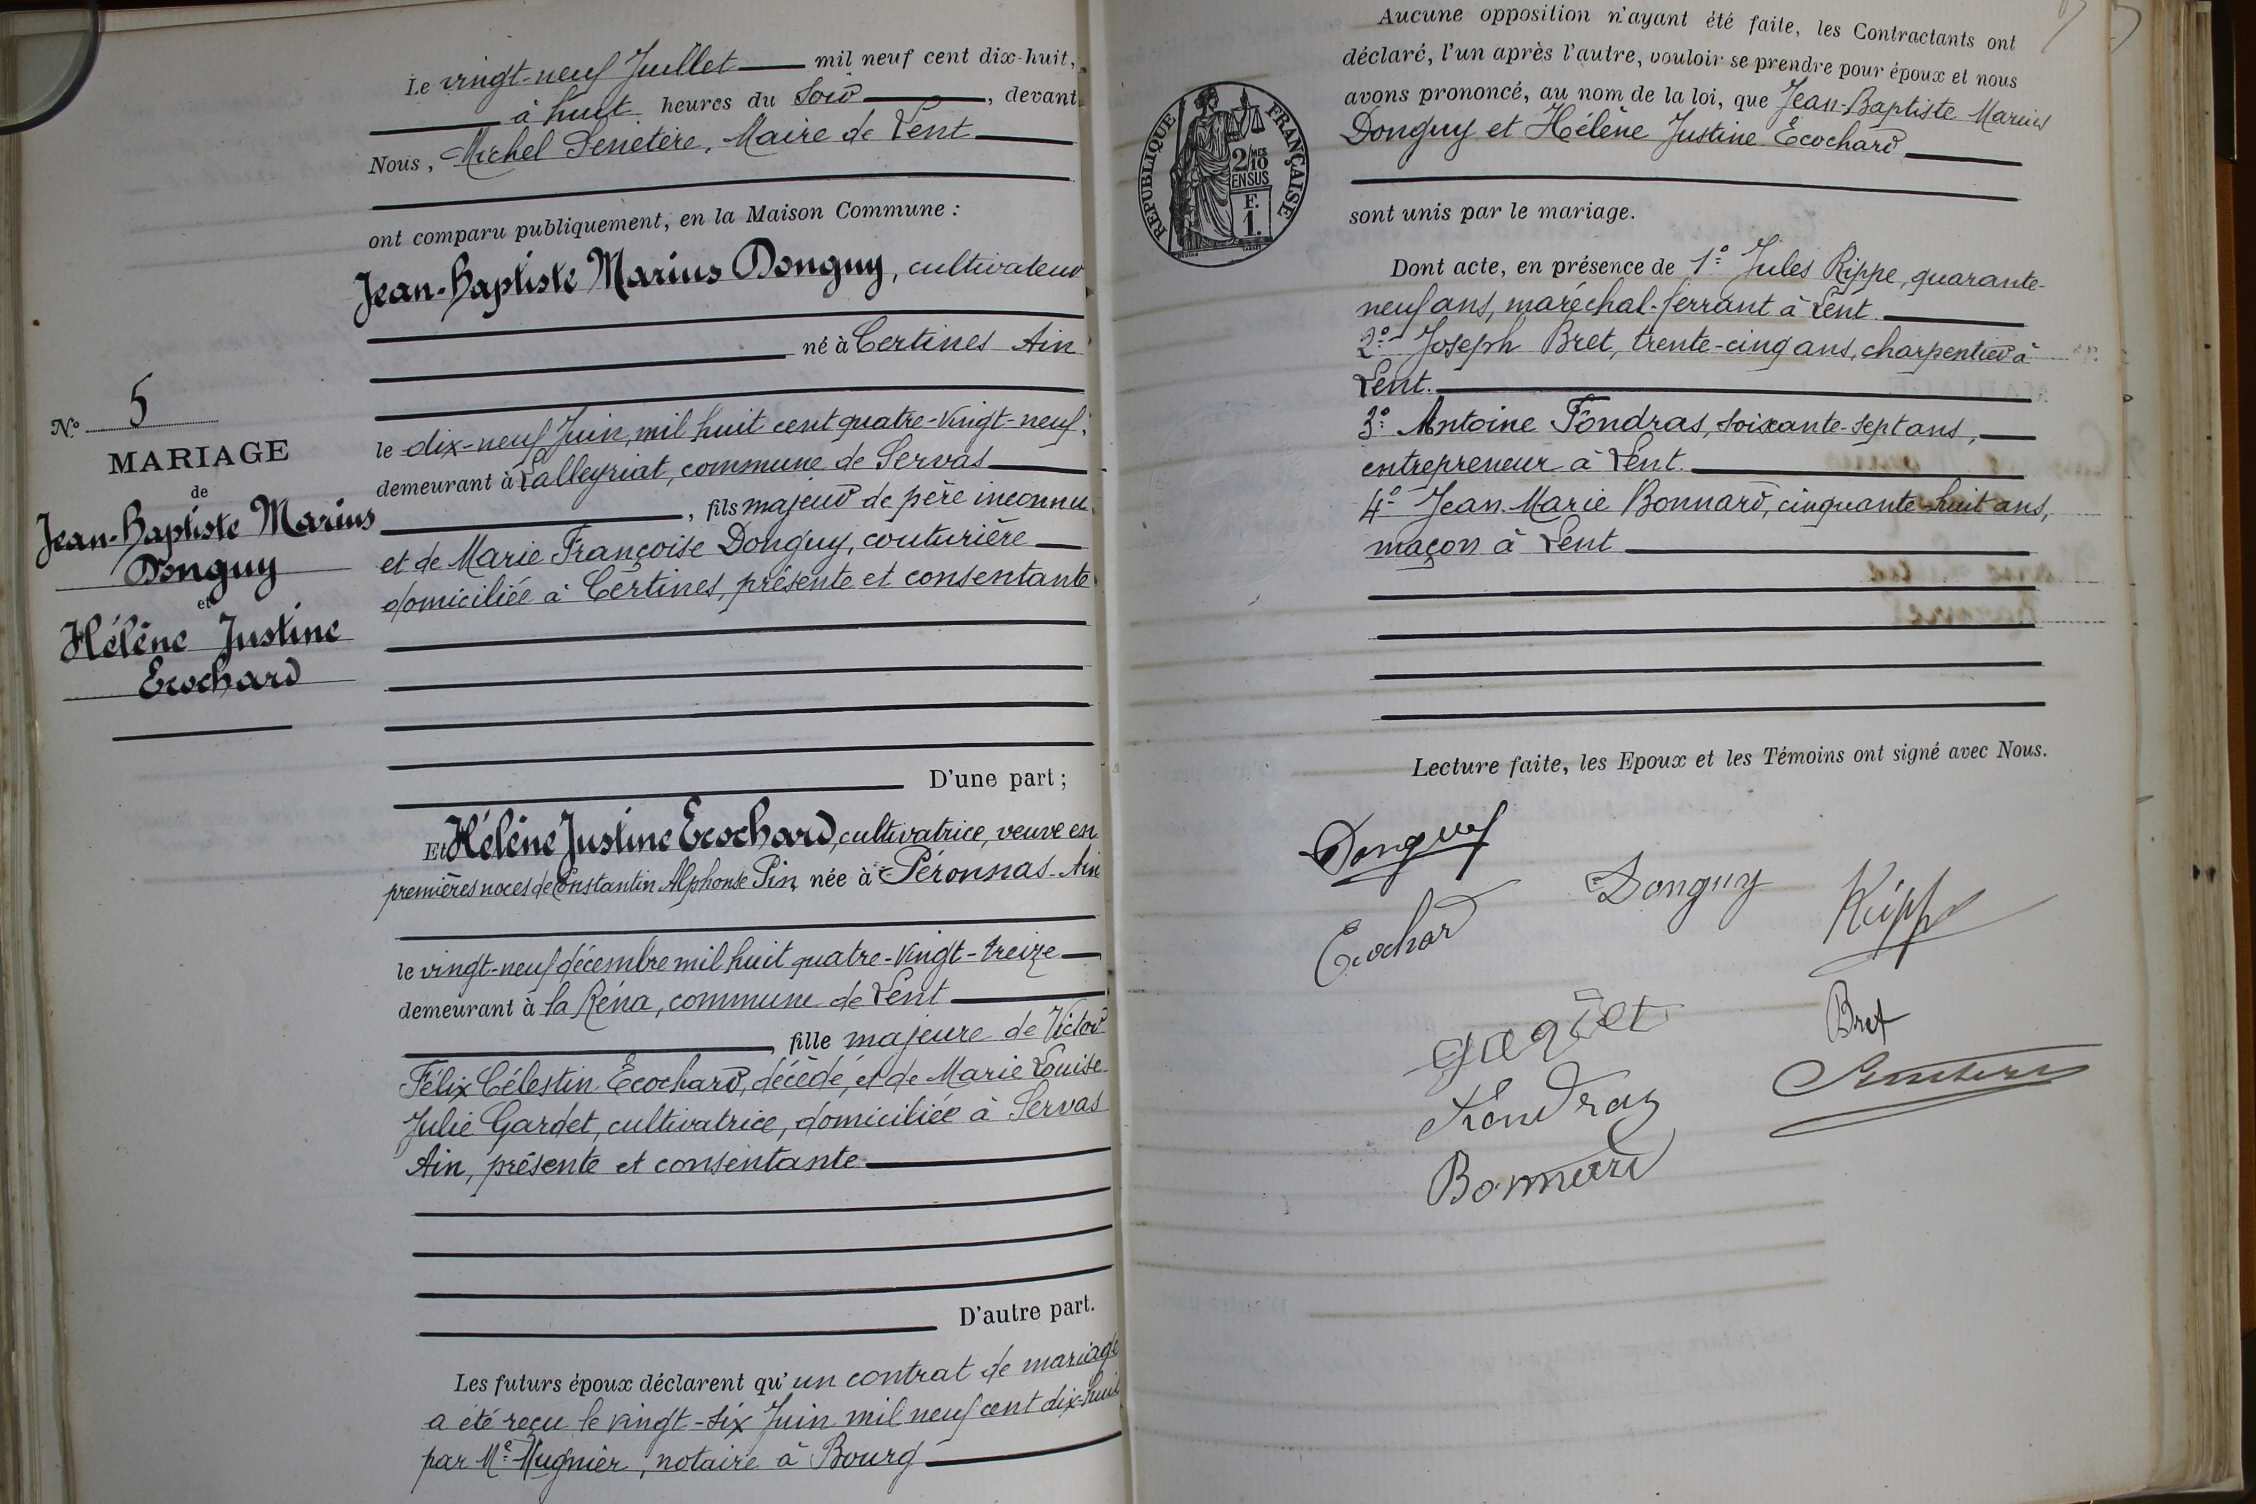 Le vingt-neuf Juillet mil neuf cent dix-huit,
à huit heures du Soir, devant
Nous, Michel Senetère, Maire de Lent
ont comparu publiquement, en la Maison Commune :
Jean-Baptiste Marius Donguy, cultivateur
né à Certines Ain
le dix-neuf Juin, mil huit cent quatre-vingt-neuf,
demeurant à Lalleyriat, commune de Servas
, fils majeur de père inconnu
et de Marie Françoise Donguy, couturière
domiciliée à Certines, présente et consentante
D'une part ;
Et Hélène Justine Ecochard, cultivatrice, veuve en
premières noces de Constantin Alphonse Pin, née à Péronnas-Ain
le vingt-neuf décembre mil huit quatre-vingt-treize
demeurant à la Réna, commune de Lent
, fille majeure de Victor
Félix Célestin Ecochard, décédé, et de Marie Louise
Julie Gardet, cultivatrice, domiciliée à Servas
Ain, présente et consentante
D'autre part.
Les futurs époux déclarent qu'un contrat de mariage
a été reçu le vingt-six Juin mil neuf cent dix-huit
par Me Mugnier, notaire à Bourg
N.º 5
MARIAGE
de
Jean-Baptiste Marius
Donguy
et
Hélène Justine
Ecochard
Aucune opposition n'ayant été faite, les Contractants ont
déclaré, l'un après l'autre, vouloir se prendre pour époux et nous
avons prononcé, au nom de la loi, que Jean-Baptiste Marius
Donguy et Hélène Justine Ecochard
sont unis par le mariage.
RÉPUBLIQUE FRANÇAISE
2/10 MES
EN SUS
F.
1.
Dont acte, en présence de 1º Jules Rippe, quarante-
neuf ans, maréchal-ferrant à Lent
2º Joseph Bret, trente-cinq ans, charpentier à
Lent.
3º Antoine Fondras, soixante-sept ans,
entrepreneur à Lent.
4º Jean-Marie Bonnard, cinquante-huit ans,
maçon à Lent
Lecture faite, les Epoux et les Témoins ont signé avec Nous.
Donguy
Ecochard
Donguy
Rippe
Bret
Fondraz
Senetère
Bonnard